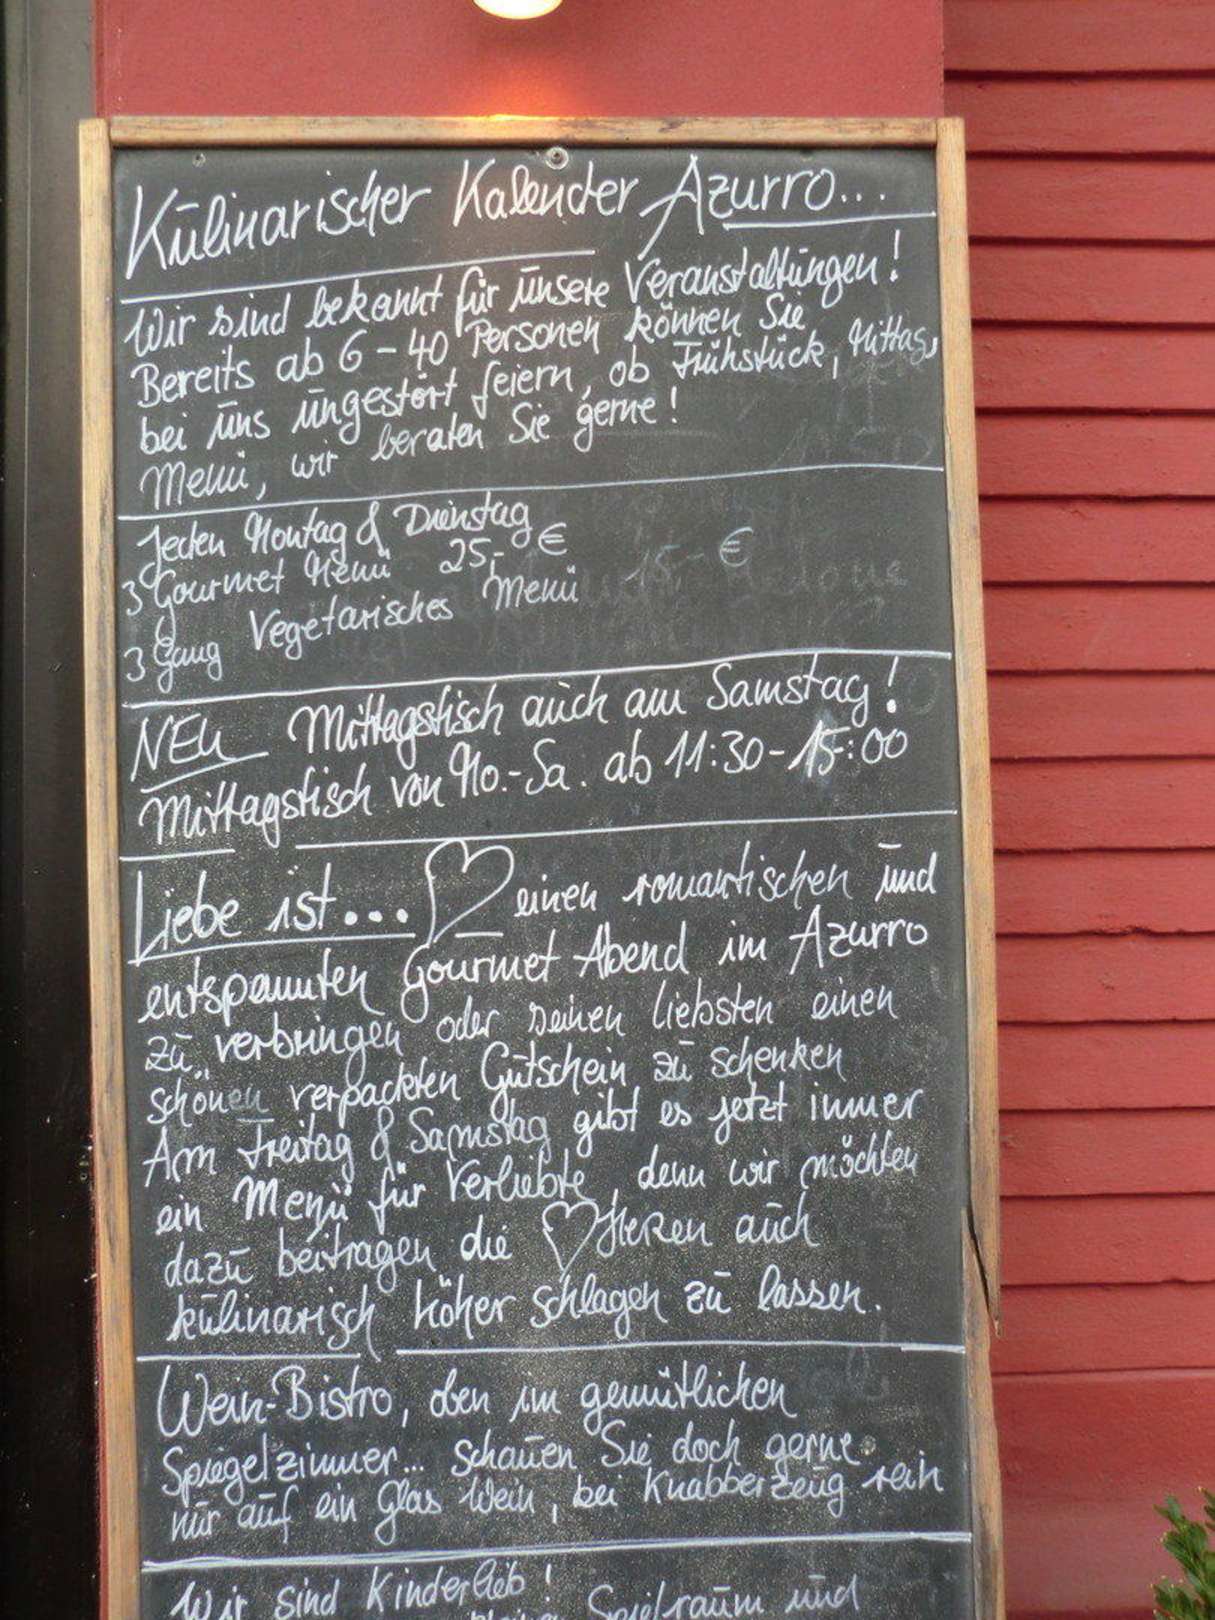 Kulinarischer Kalender Azurro...
Wir sind bekannt für unsere Veranstaltungen!
Bereits ab 6 - 40 Personen können Sie
bei uns ungestört feiern, ob Frühstück, Mittag,
Menü, wir beraten Sie gerne!
Jeden Montag & Dienstag
3 Gourmet Menü 25,- €
3 Gang Vegetarisches Menü 15,- €
NEU Mittagstisch auch am Samstag!
Mittagstisch von Mo.-Sa. ab 11:30-15:00
Liebe ist... einen romantischen und
entspannten Gourmet Abend im Azurro
zu verbringen oder seinen liebsten einen
schönen verpackten Gutschein zu schenken
Am Freitag & Samstag gibt es jetzt immer
ein Menü für Verliebte, denn wir möchten
dazu beitragen die Herzen auch
kulinarisch höher schlagen zu lassen.
Wein-Bistro, oben im gemütlichen
Spiegelzimmer... schauen Sie doch gerne
nur auf ein Glas Wein, bei Knabberzeug rein
Wir sind Kinderlieb!
Spielraum und